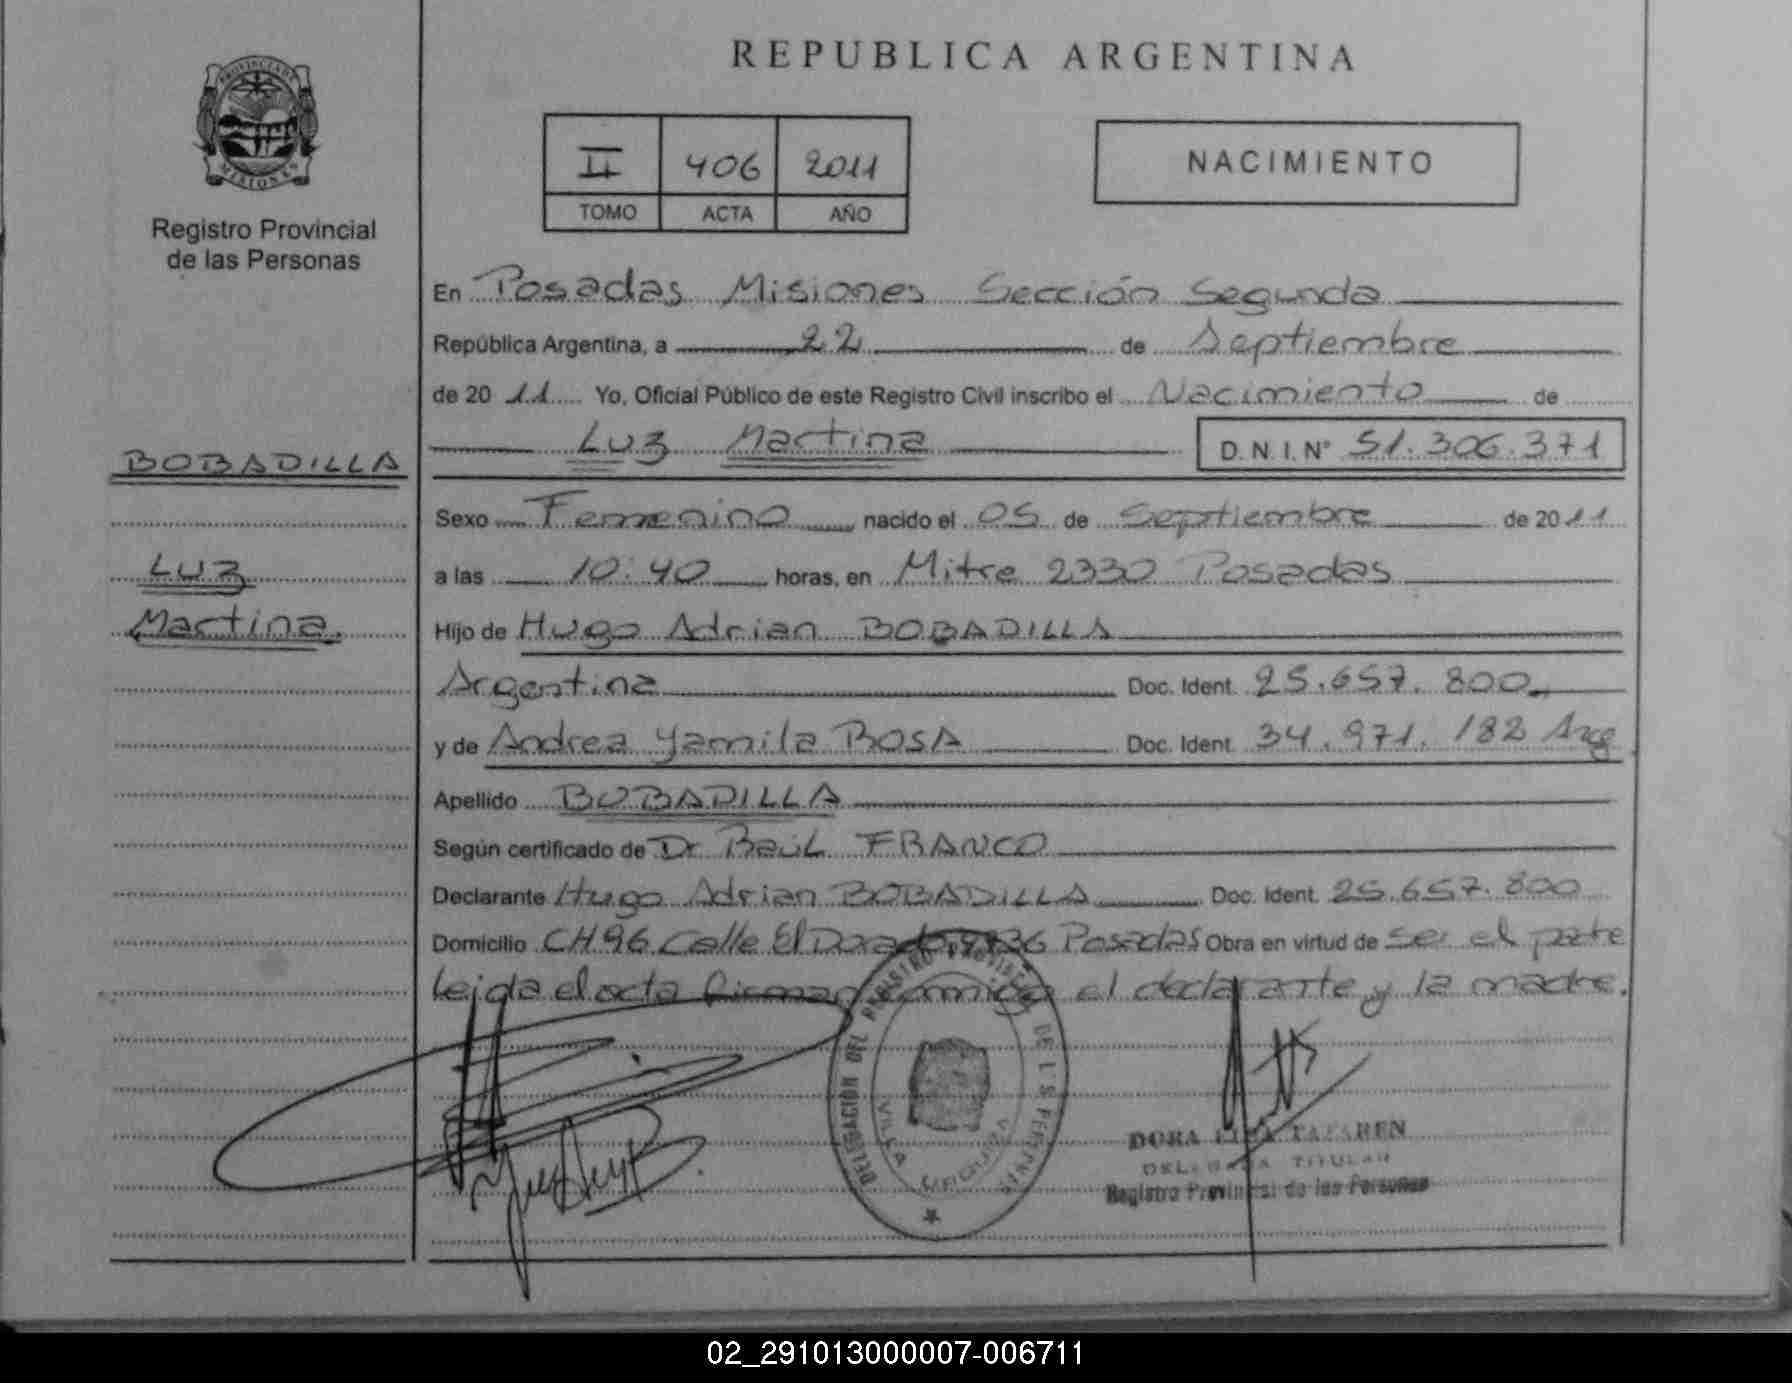 REPUBLICA ARGENTINA
PROVINCIA DE
MISIONES
Registro Provincial
de las Personas
II 406 2011
TOMO ACTA AÑO
NACIMIENTO
BOBADILLA
Luz
Martina.
En Posadas Misiones Sección Segunda
República Argentina, a 22 de Septiembre
de 2011 Yo, Oficial Público de este Registro Civil inscribo el Nacimiento de
Luz Martina D.N.I.Nº 51.306.371
Sexo Femenino nacido el 05 de Septiembre de 2011
a las 10:40 horas, en Mitre 2330 Posadas
Hijo de Hugo Adrian BOBADILLA
Argentina Doc. Ident. 25.657.800
y de Andrea Yamila ROSA Doc. Ident. 34.971.182 Arg
Apellido BOBADILLA
Según certificado de Dr Raúl FRANCO
Declarante Hugo Adrian BOBADILLA Doc. Ident. 25.657.800
Domicilio CH96 Calle El Dorado Posadas Obra en virtud de ser el padre
leida el acta firman conmigo el declarante y la madre.
DELEGACIÓN DEL REGISTRO PROVINCIAL DE LAS PERSONAS
VILLA URQUIZA
DORA
DELEGADA TITULAR
Registro Provincial de las Personas
02_291013000007-006711